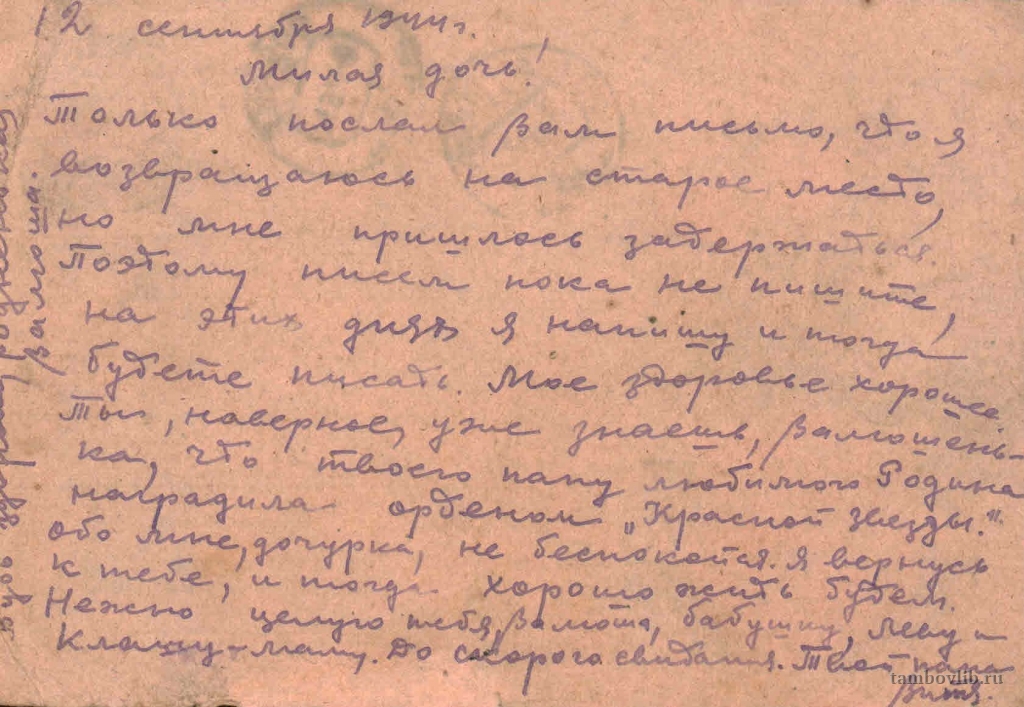 12 сентября 1944 г.
Милая дочь!
Только послал вам письмо, что я
возвращаюсь на старое место,
но мне пришлось задержаться.
Поэтому писем пока не пишите,
на этих днях я напишу и тогда
будете писать. Мое здоровье хорошее.
Ты, наверное, уже знаешь, Валюшень-
ка, что твоего папу любимого Родина
наградила орденом „Красной звезды".
Обо мне, дочурка, не беспокойся. Я вернусь
к тебе, и тогда хорошо жить будем.
Нежно целую тебя, Валюша, бабушку, Леву и
Клашу-маму. До скорого свидания. Твой папа
Витя.
Будь здорова, родненькая
Валюша.
tambovlib.ru